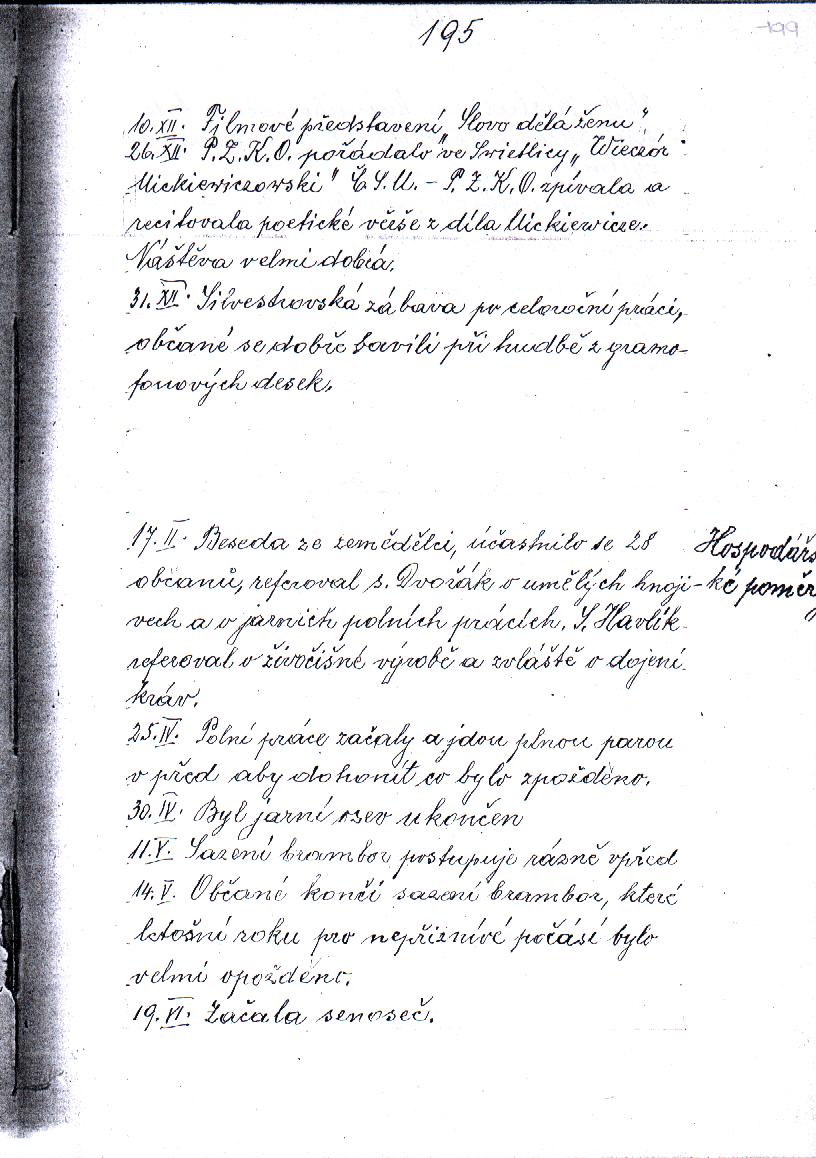 195
199
10.XII. Filmové představení „Slovo dělá ženu",
26.XII. P.Z.K.O. pořádalo ve Swietlicy „Wieczór
Mickiewiczowski" Č.S.M. – P.Z.K.O. zpívala a
recitovala poetické verše z díla Mickiewicze.
Návštěva velmi dobrá.
31.XII. Silvestrovská zábava po celoroční práci,
občané se dobře bavili při hudbě z gramo-
fonových desek.
17.II. Beseda ze zemědělci, účastnilo se 28
Hospodářs
občanů, referoval s. Dvořák o umělých hnoji-
ké poměry
vech a o jarních polních prácích. S. Havlík
referoval o živočišné výrobě a zvláště o dojení
kráv.
25.IV. Polní práce začaly a jdou plnou parou
v před aby dohonit co bylo zpožděno.
30.IV. Byl jarní osev ukončen
11.V. Sazení brambor postupuje rázně vpřed
14.V. Občané končí sazení brambor, které
letošní roku pro nepříznivé počasí bylo
velmi opožděno.
19.VI. Začala senoseč.